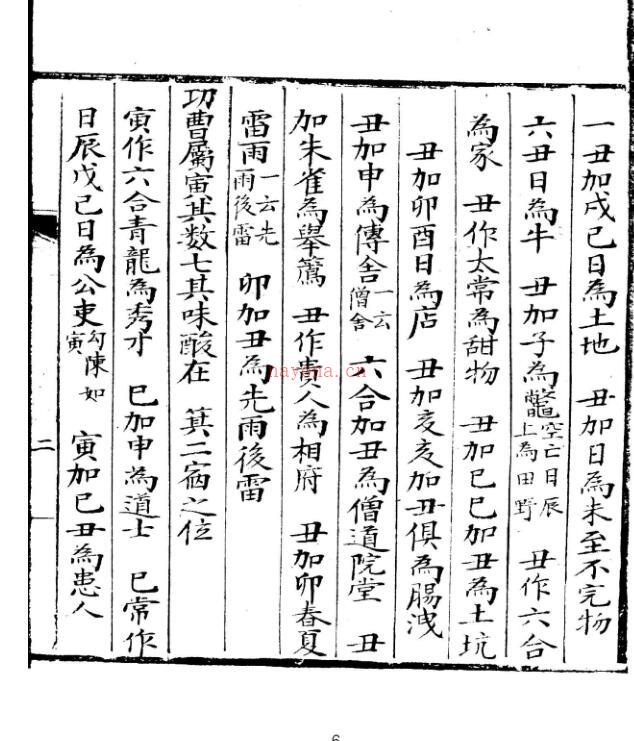 一丑加戌己日為土地　丑加日為未至不完物
六丑日為牛　丑加子為鼈空亡日辰上為田野　丑作六合
為家　丑作太常為甜物　丑加巳巳加丑為土坑
丑加卯酉日為店　丑加亥亥加丑俱為腸洩
丑加申為傳舍一云僧舍　六合加丑為僧道院堂　丑
加朱雀為舉薦　丑作貴人為相府　丑加卯春夏
雷雨一云先雨後雷　卯加丑為先雨後雷
功曹屬寅其数七其味酸在　箕二宿之位
寅作六合青龍為秀才　巳加申為道士　巳常作
日辰戊己日為公吏勾陳如寅　寅加巳丑為患人
二
nayona.cn
6